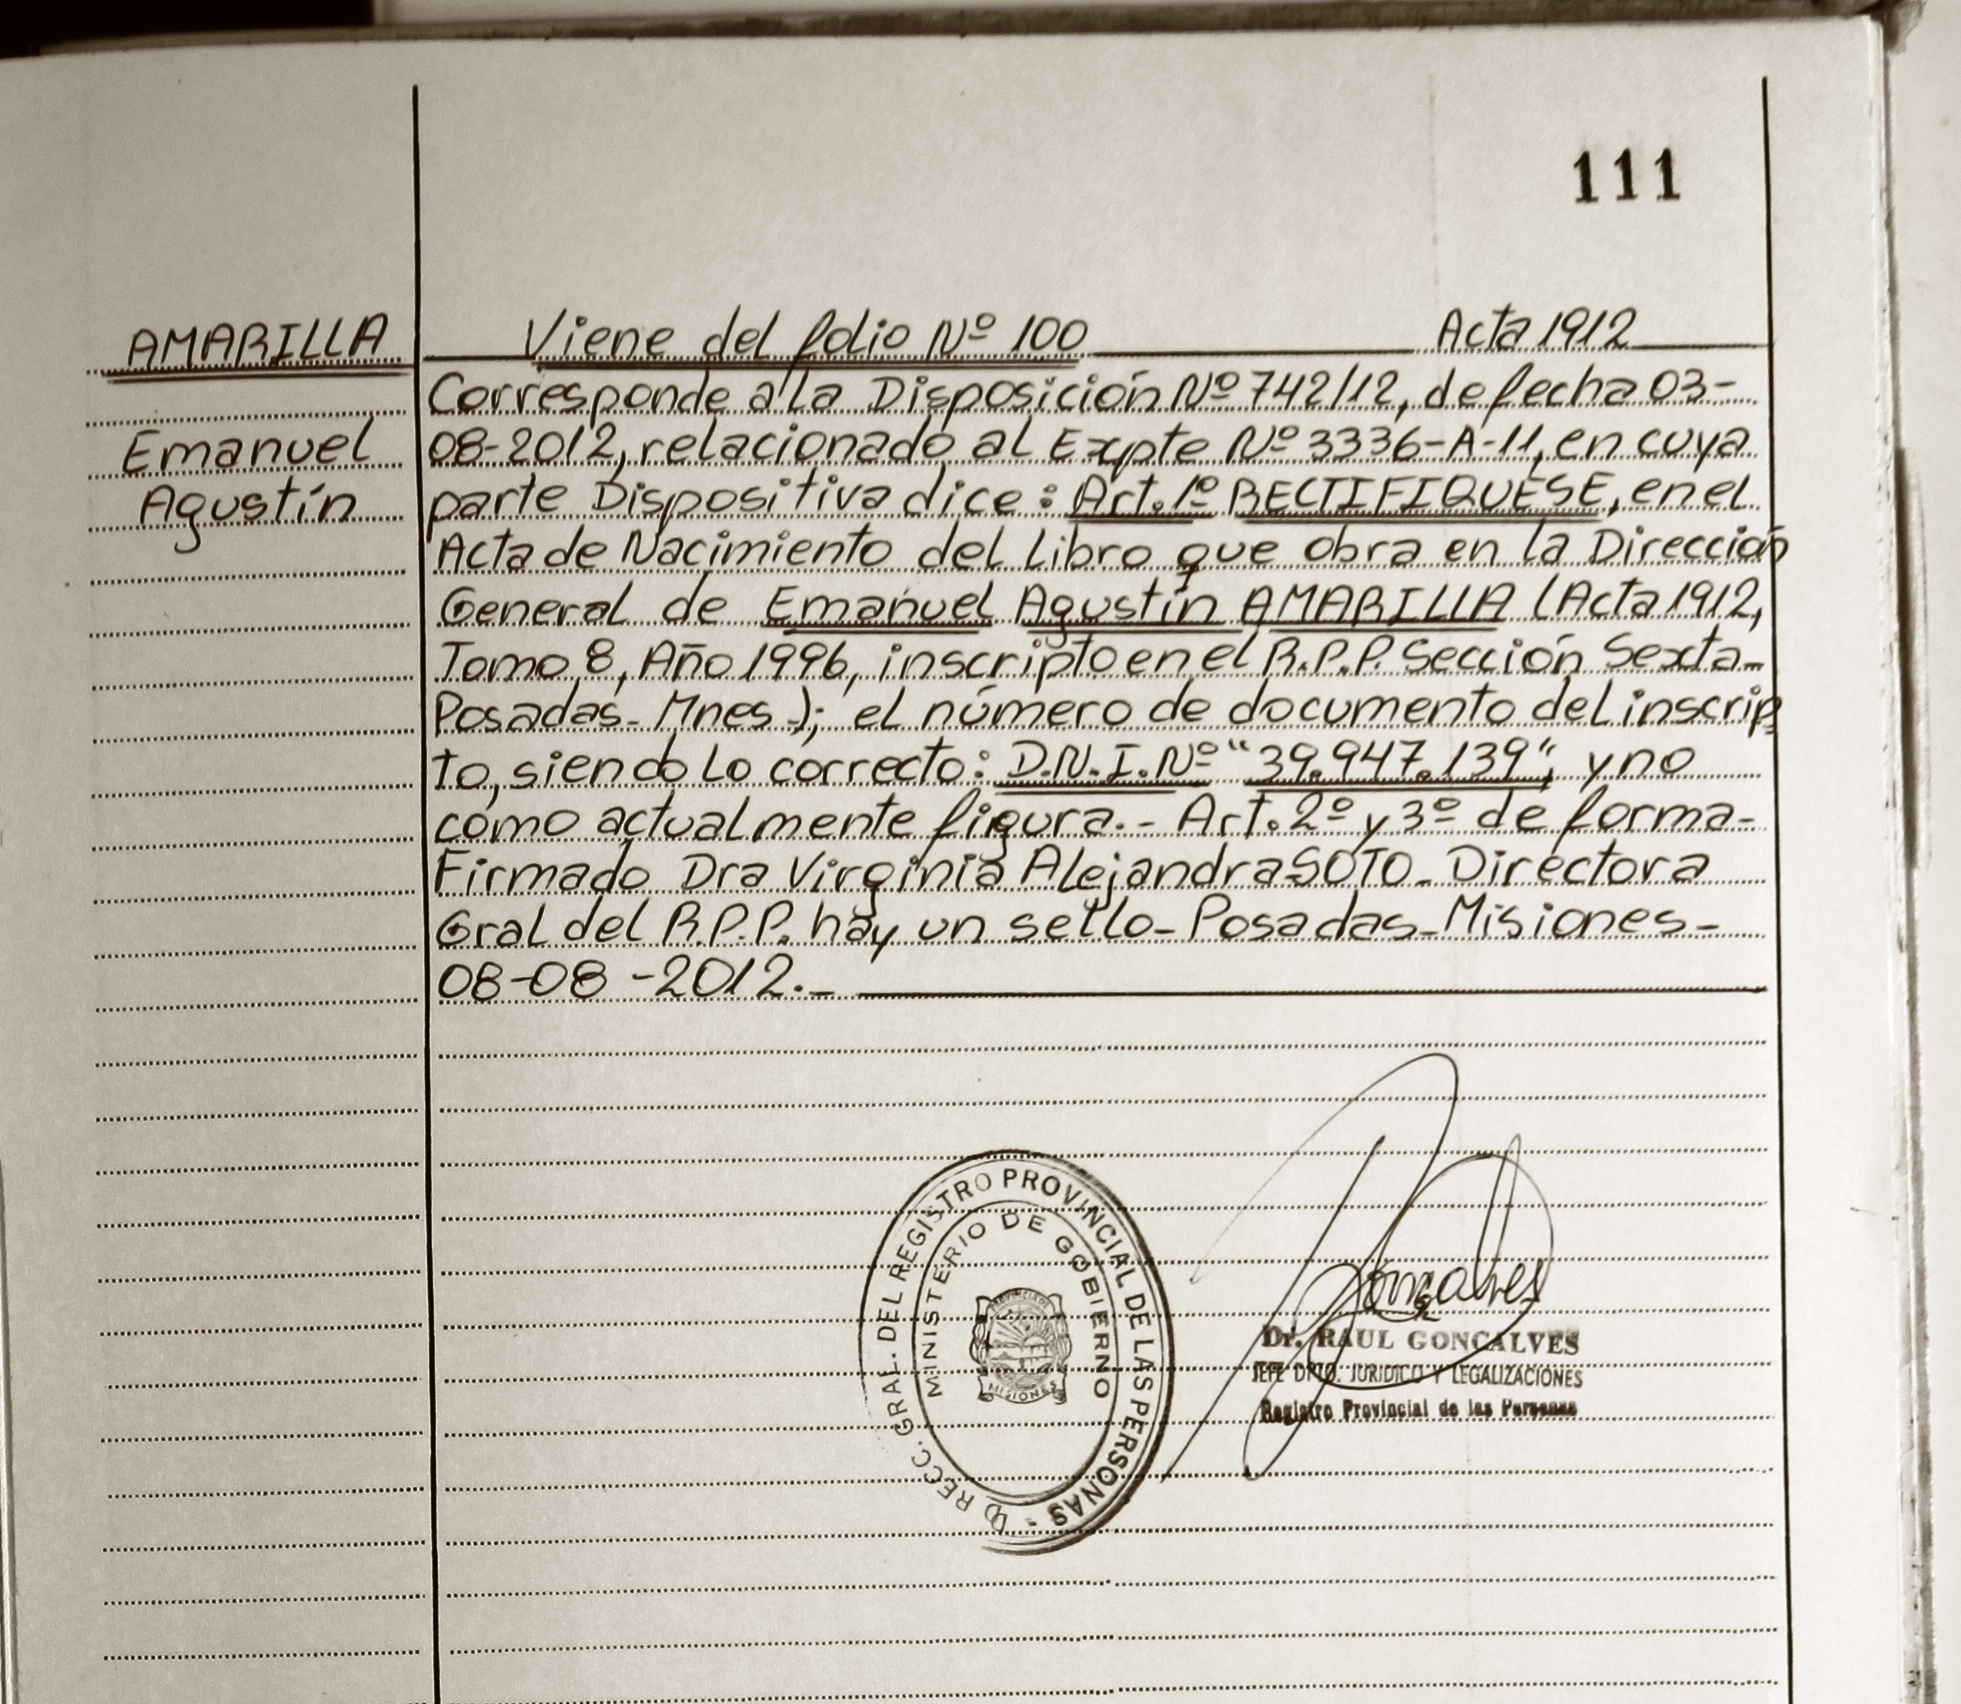 111
AMARILLA
Emanuel
Agustín
Viene del folio Nº 100 Acta 1912
Corresponde a la Disposición Nº 742/12, de fecha 03-
08-2012, relacionado al Expte Nº 3336-A-11, en cuya
parte Dispositiva dice: Art. 1º RECTIFIQUESE, en el
Acta de Nacimiento del Libro que obra en la Dirección
General de Emanuel Agustín AMARILLA (Acta 1912,
Tomo 8, Año 1996, inscripto en el R.P.P. Sección Sexta-
Posadas- Mnes.); el número de documento del inscrip
to, siendo lo correcto: D.N.I. Nº "39.947.139", y no
como actualmente figura.- Art. 2º y 3º de forma-
Firmado Dra Virginia Alejandra SOTO- Directora
Gral del R.P.P. hay un sello- Posadas- Misiones-
08-08-2012.-
DIRECC. GRAL. DEL REGISTRO PROVINCIAL DE LAS PERSONAS -
MINISTERIO DE GOBIERNO
PROVINCIA DE
MISIONES
Gonçalves
Dr. RAUL GONCALVES
JEFE DPTO. JURIDICO Y LEGALIZACIONES
Registro Provincial de las Personas